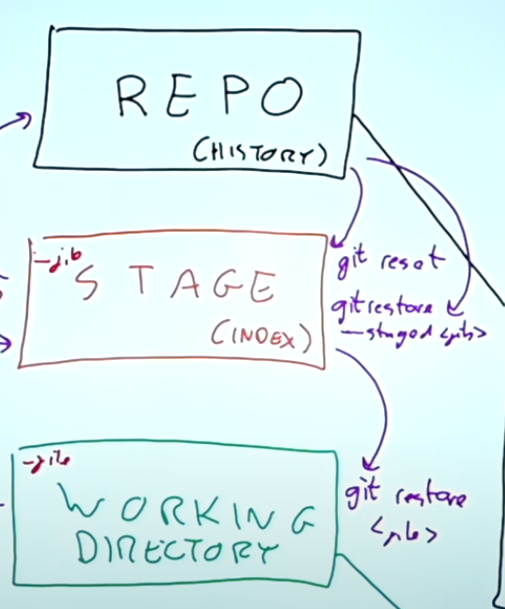 REPO
(HISTORY)
-file
STAGE
(INDEX)
git reset
git restore
--staged <file>
-file
WORKING
DIRECTORY
git restore
<file>